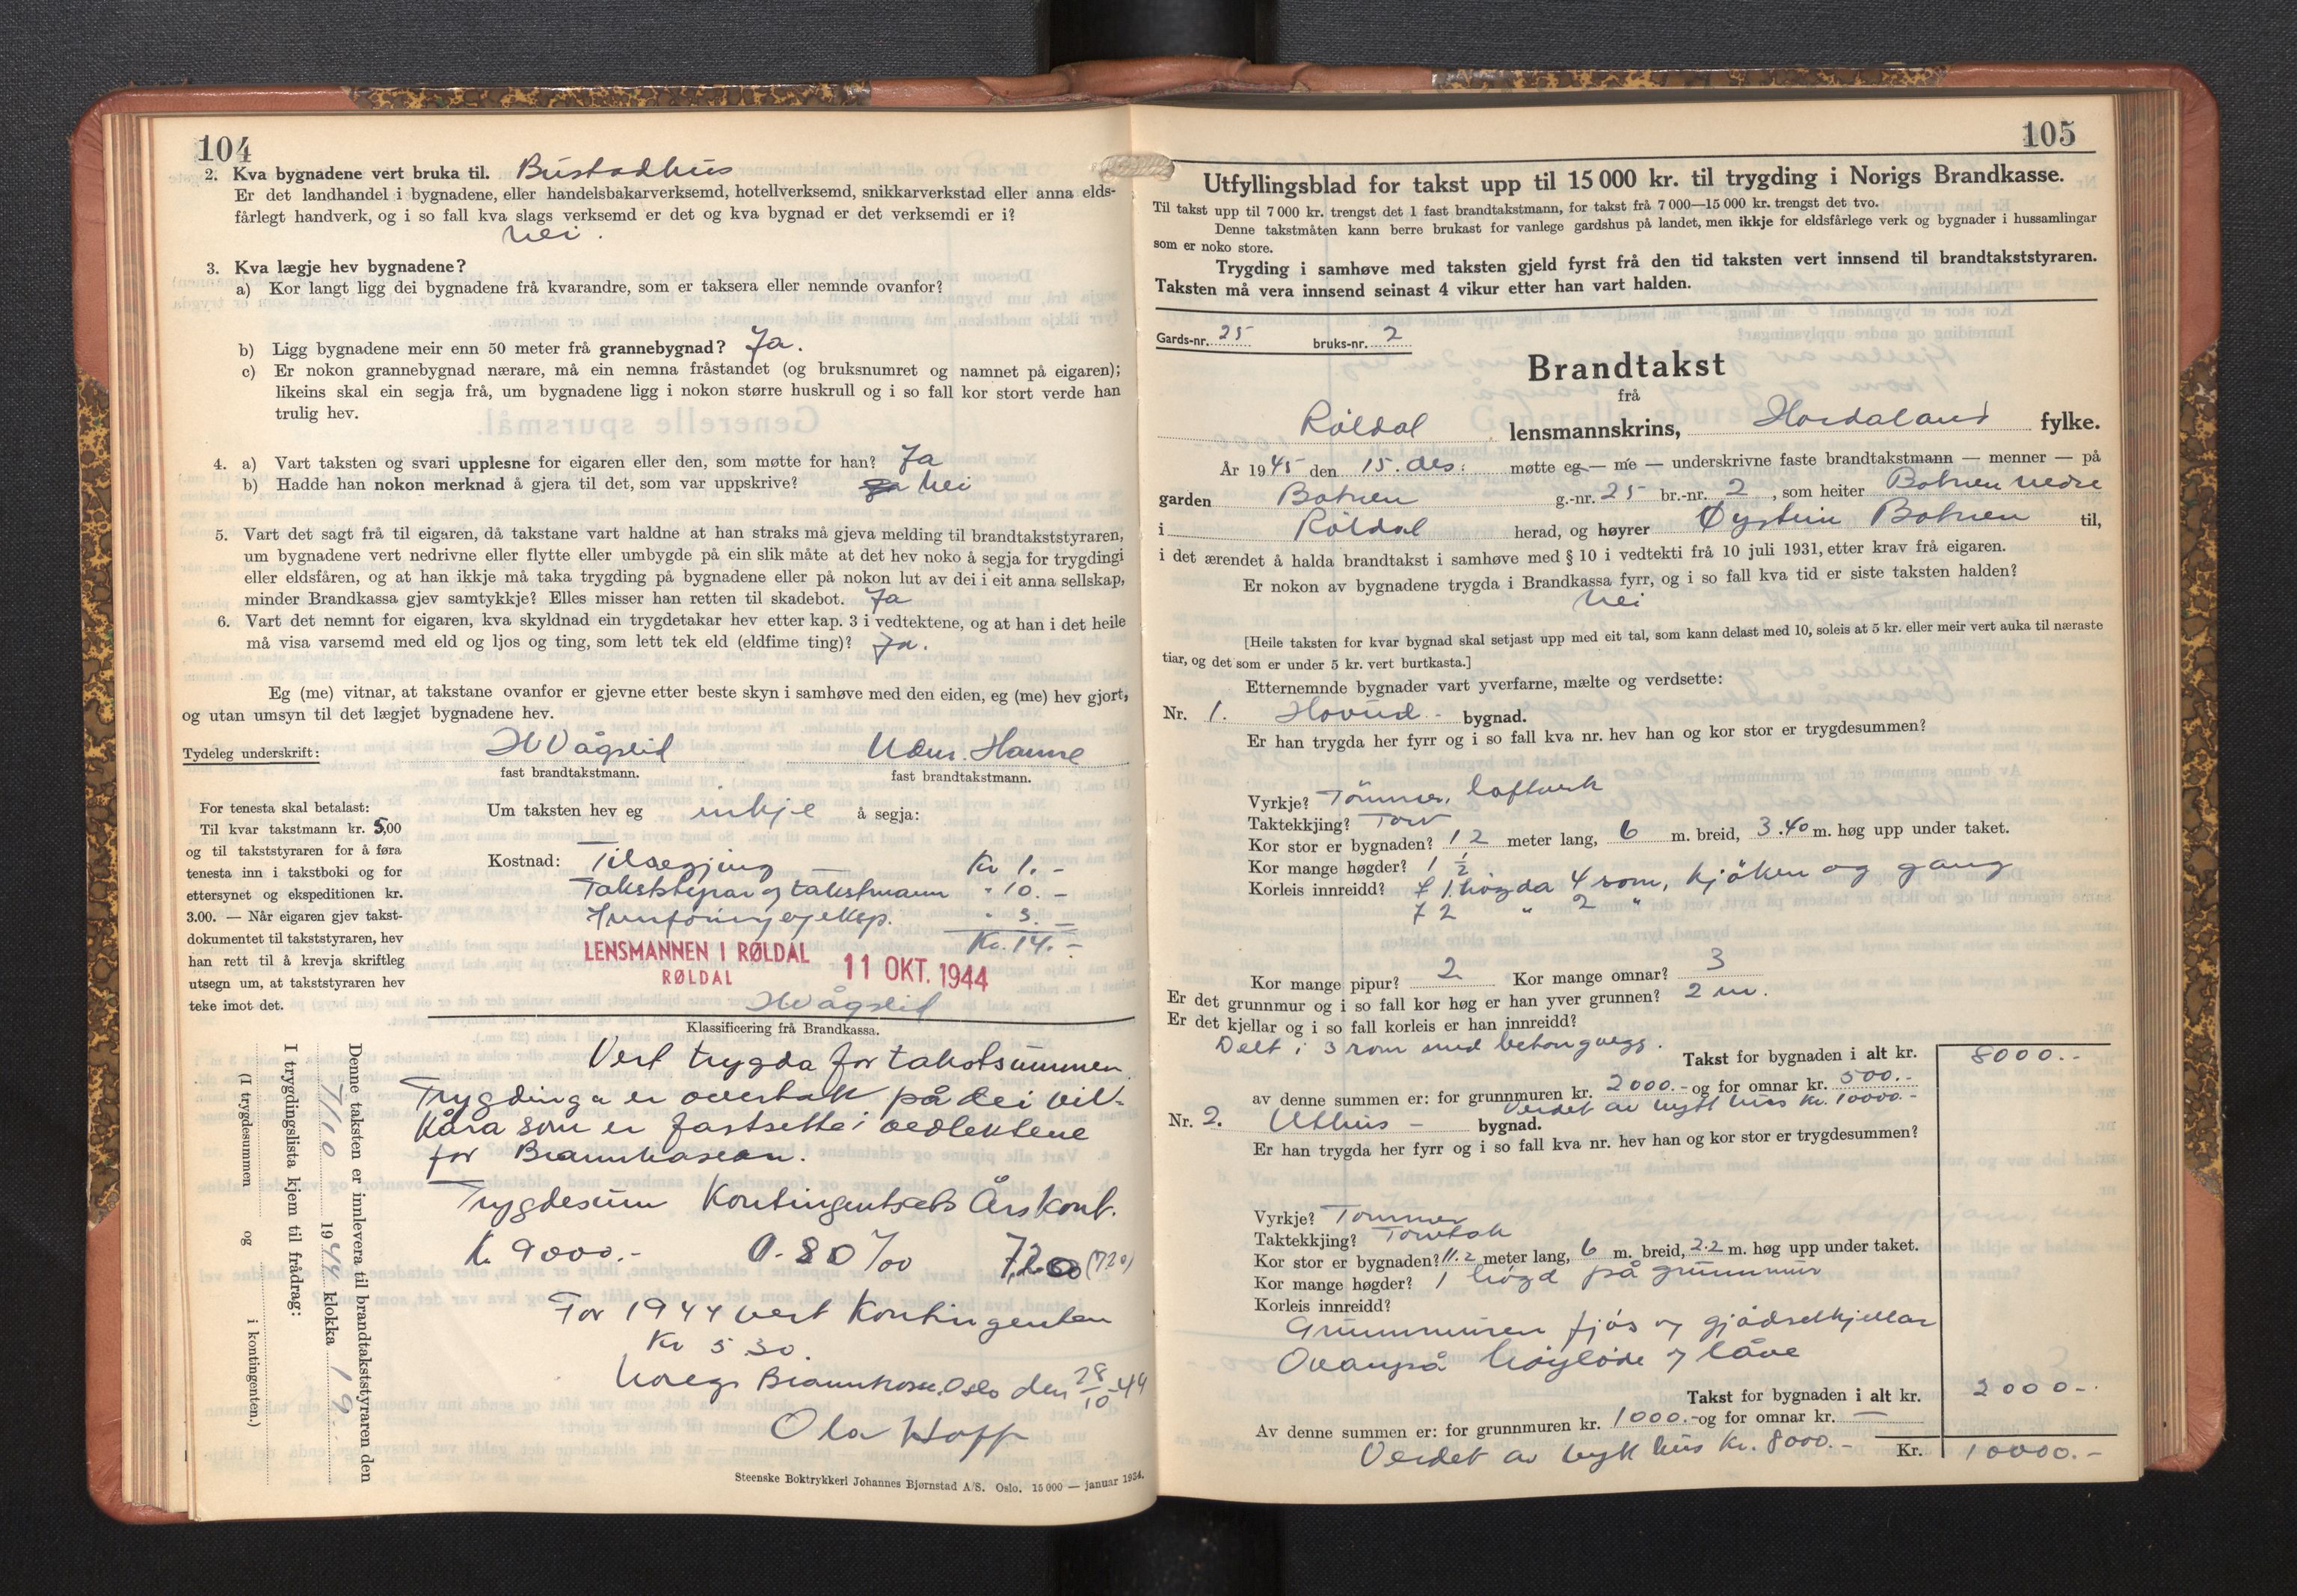 104
2. Kva bygnadene vert bruka til. Bustadhus
Er det landhandel i bygnadene, eller handelsbakarverksemd, hotellverksemd, snikkarverkstad eller anna elds-
fårlegt handverk, og i so fall kva slags verksemd er det og kva bygnad er det verksemdi er i?
Nei.
3. Kva lægje hev bygnadene?
a) Kor langt ligg dei bygnadene frå kvarandre, som er taksera eller nemnde ovanfor?
b) Ligg bygnadene meir enn 50 meter frå grannebygnad? Ja.
c) Er nokon grannebygnad nærare, må ein nemna fråstandet (og bruksnumret og namnet på eigaren);
likeins skal ein segja frå, um bygnadene ligg i nokon større huskrull og i so fall kor stort verde han
trulig hev.
4. a) Vart taksten og svari upplesne for eigaren eller den, som møtte for han? Ja
b) Hadde han nokon merknad å gjera til det, som var uppskrive? Nei
5. Vart det sagt frå til eigaren, då takstane vart haldne at han straks må gjeva melding til brandtakststyraren,
um bygnadene vert nedrivne eller flytte eller umbygde på ein slik måte at det hev noko å segja for trygdingi
eller eldsfåren, og at han ikkje må taka trygding på bygnadene eller på nokon lut av dei i eit anna sellskap,
minder Brandkassa gjev samtykkje? Elles misser han retten til skadebot. Ja
6. Vart det nemnt for eigaren, kva skyldnad ein trygdetakar hev etter kap. 3 i vedtektene, og at han i det heile
må visa varsemd med eld og ljos og ting, som lett tek eld (eldfime ting)? Ja.
Eg (me) vitnar, at takstane ovanfor er gjevne etter beste skyn i samhøve med den eiden, eg (me) hev gjort,
og utan umsyn til det lægjet bygnadene hev.
Tydeleg underskrift: H Vågslid
fast brandtakstmann. fast brandtakstmann.
For tenesta skal betalast:
Til kvar takstmann kr. 5,00
og til takststyraren for å føra
tenesta inn i takstboki og for
ettersynet og ekspeditionen kr.
3.00. — Når eigaren gjev takst-
dokumentet til takststyraren, hev
han rett til å krevja skriftleg
utsegn um, at takststyraren hev
teke imot det.
Um taksten hev eg inkje å segja:
Kostnad: Tilsegjing Kr 1.-
Takststyrar og takstmann " 10.-
Innföring og eksp. " 3.-
Kr. 14.-
LENSMANNEN I RØLDAL
RØLDAL
11 OKT. 1944
H Vågslid
Klassificering frå Brandkassa.
Vert trygda for takstsummen.
Trygdinga er overtak på dei vil-
kåra som er fastsette i vedtektene
for Brannkassen.
Trygdesum Kontingentsats Årskont.
Kr. 9000.- 0.80 ‰ 7,20 (7.20)
For 1944 vert kontingenten
Kr 5.30.
Noregs Brannkasse, Oslo den 28/10-44
Ola Hopp
Denne taksten er innlevera til brandtakststyraren den
7/10 1944 klokka 19
I trygdingslista kjem til frådrag:
(I trygdesummen og i kontingenten.)
Steenske Boktrykkeri Johannes Bjørnstad A/S. Oslo. 15 000 — januar 1934.
105
Utfyllingsblad for takst upp til 15 000 kr. til trygding i Norigs Brandkasse.
Til takst upp til 7 000 kr. trengst det 1 fast brandtakstmann, for takst frå 7 000—15 000 kr. trengst det tvo.
Denne takstmåten kann berre brukast for vanlege gardshus på landet, men ikkje for eldsfårlege verk og bygnader i hussamlingar
som er noko store.
Trygding i samhøve med taksten gjeld fyrst frå den tid taksten vert innsend til brandtakststyraren.
Taksten må vera innsend seinast 4 vikur etter han vart halden.
Gards-nr. 25 bruks-nr. 2
Brandtakst
frå
Röldal lensmannskrins, Hordaland fylke.
År 1945 den 15. des. møtte eg — me — underskrivne faste brandtakstmann — menner — på
garden Botnen g.-nr. 25 br.-nr. 2, som heiter Botnen nedre
i Röldal herad, og høyrer Øystein Botnen til,
i det ærendet å halda brandtakst i samhøve med § 10 i vedtekti frå 10 juli 1931, etter krav frå eigaren.
Er nokon av bygnadene trygda i Brandkassa fyrr, og i so fall kva tid er siste taksten halden?
Nei
[Heile taksten for kvar bygnad skal setjast upp med eit tal, som kann delast med 10, soleis at 5 kr. eller meir vert auka til næraste
tiar, og det som er under 5 kr. vert burtkasta.]
Etternemnde bygnader vart yverfarne, mælte og verdsette:
Nr. 1. Hovud- bygnad.
Er han trygda her fyrr og i so fall kva nr. hev han og kor stor er trygdesummen?
Vyrkje? Tömmer, laftverk
Taktekkjing? Torv
Kor stor er bygnaden? 12 meter lang, 6 m. breid, 3.40 m. høg upp under taket.
Kor mange høgder? 1 1/2
Korleis innreidd? I 1. högda 4 rom, kjöken og gang
I 2 " 2 "
Kor mange pipur? 2 Kor mange omnar? 3
Er det grunnmur og i so fall kor høg er han yver grunnen? 2 m.
Er det kjellar og i so fall korleis er han innreidd?
Delt i 3 rom med betongvegg.
Takst for bygnaden i alt kr. 8000.-
av denne summen er: for grunnmuren kr. 2000.- og for omnar kr. 500.-
Verdet av nytt hus kr. 10000.-
Nr. 2. Uthus - bygnad.
Er han trygda her fyrr og i so fall kva nr. hev han og kor stor er trygdesummen?
Vyrkje? Tömmer
Taktekkjing? Torvtak
Kor stor er bygnaden? 11.2 meter lang, 6 m. breid, 2.2 m. høg upp under taket.
Kor mange høgder? 1 högd på grunnmur
Korleis innreidd?
Grunnmuren fjös og gjödselkjellar
Ovanpå höyløde og låve
Takst for bygnaden i alt kr. 2000-
Av denne summen er: for grunnmuren kr. 1000.- og for omnar kr. —
Verdet av nytt hus kr. 8000.- Kr. 10000.-